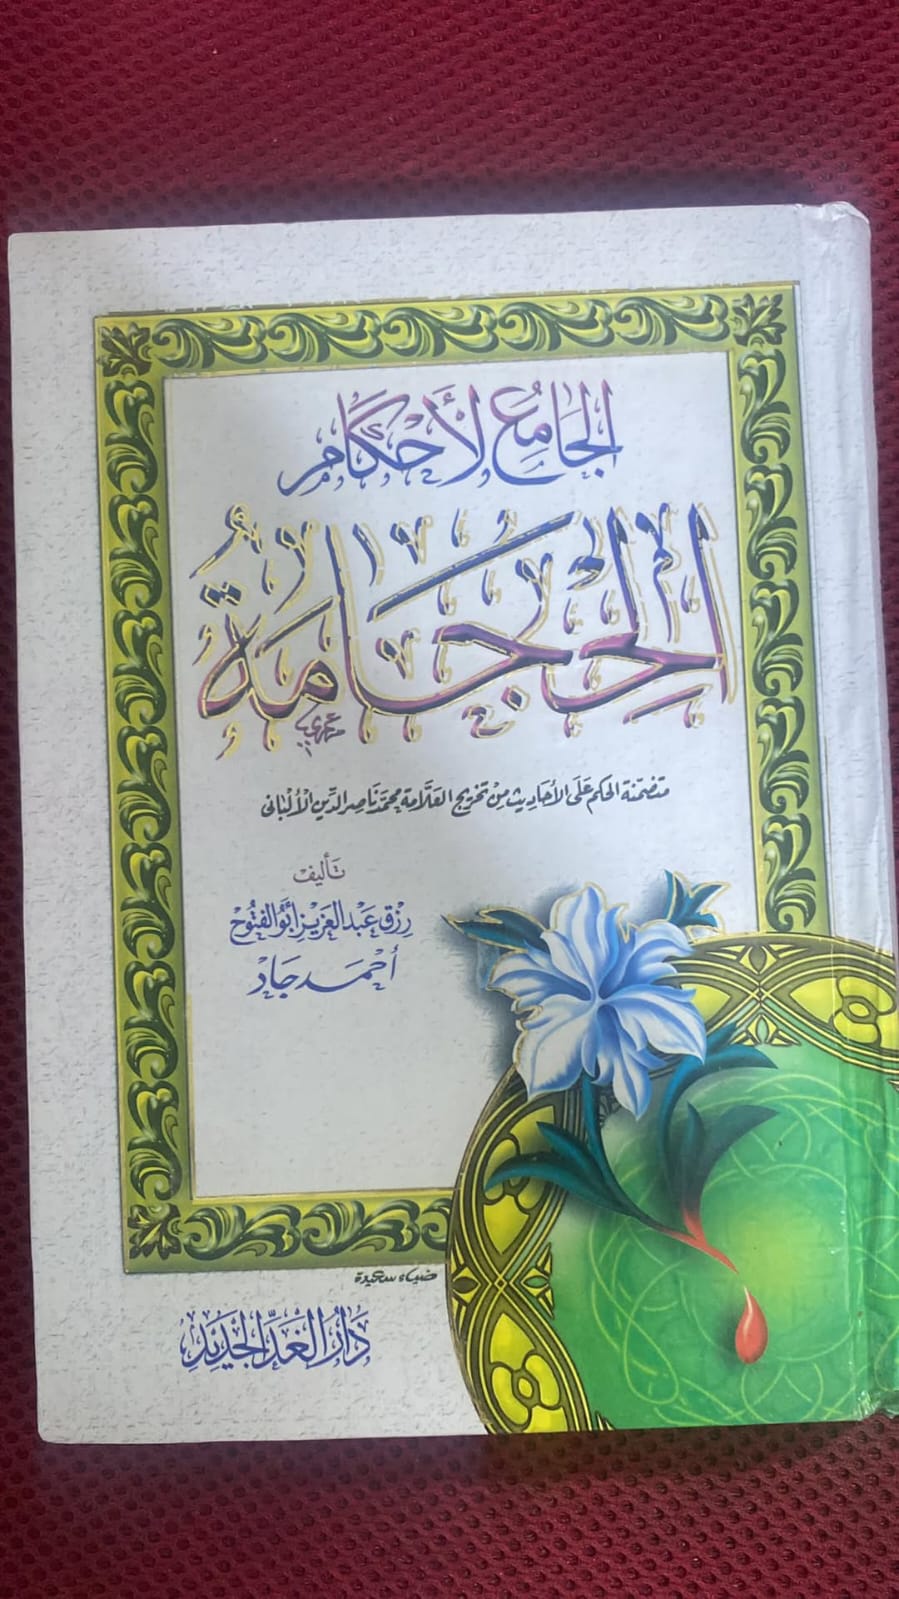 الجامع لأحكام
الحجامة
متضمنة الحكم على الأحاديث من تخريج العلامة محمد ناصر الدين الألباني
تأليف
رزق عبد العزيز أبو الفتوح
أحمد جاد
ضياء سعيدة
دار الغد الجديد